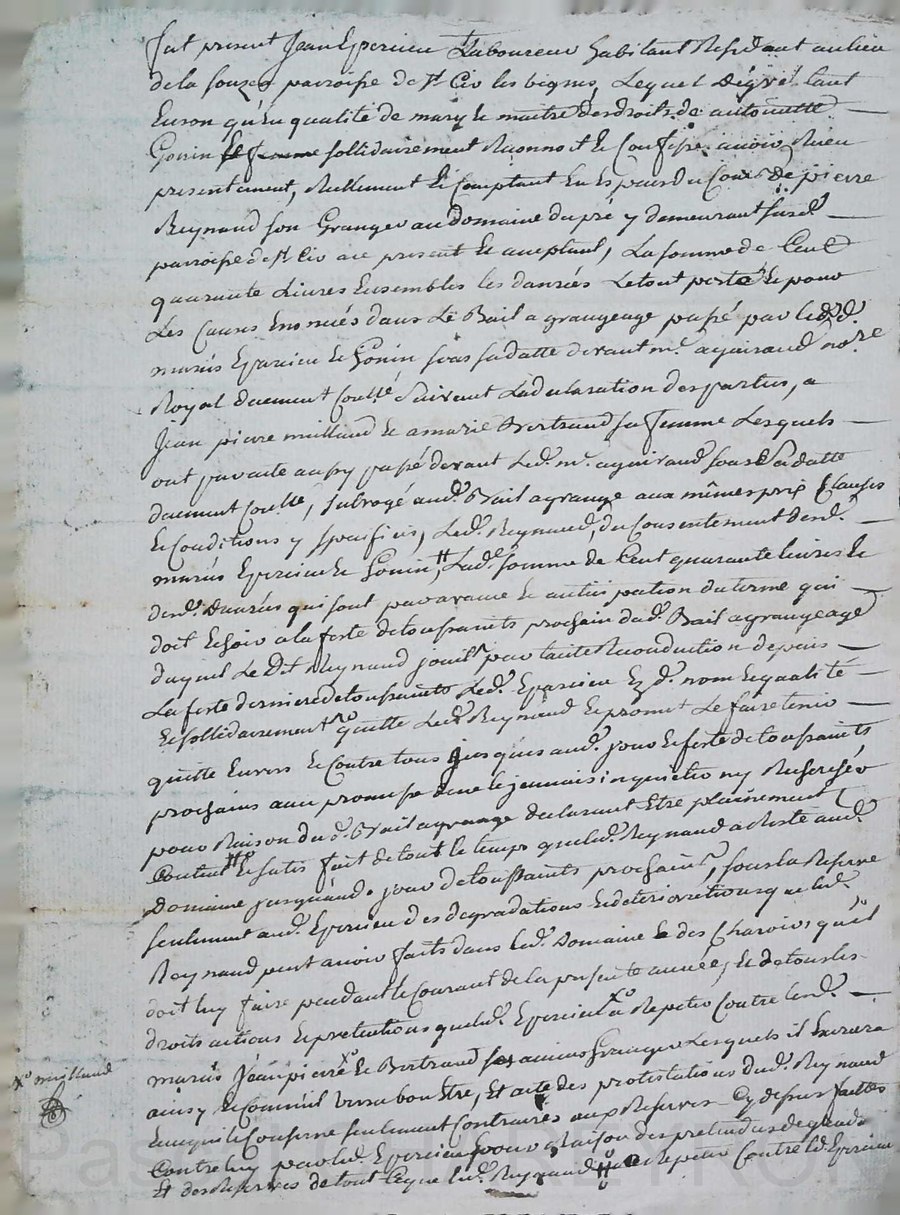 fut present Jean Eparcieu Laboureur habitant Residant au lieu
de la parroisse de st Cir les vignes, Lequel de gré tant
En son qu'En qualité de mary Et maitre des droits de antoinette
Gonin sa femme sollidairement Reconnoit Et Confesse avoir Receu
presentement, Reellement Et Comptant En Espaces du Cours de pierre
Reynaud son Granger au domaine du pré y demeurant susd.
parroisse de st Cir ace present Et aceptant, La somme de Cent
quarante Livres Ensembles les danrées Le tout porté Et pour
Les Causes Enoncés dans Le Bail a grangeage passé par lesd.
mariés Eparcieu Et Gonin sous sa datte devant me. aguiraud nore
Royal duement Collé, Suivant La declaration des parties, a
Jean pierre milland Et a marie Bertrand sa femme Lesquels
ont par acte aussy passé devant Led. me. aguiraud sous Sa datte
duement Collé, subrogé aud. Bail a grange aux mêmes prix Clauses
Et Conditions y speciffiés, Led. Reynaud, du Consentement desd.
mariés Eparcieu Et Gonin, Lad. somme de Cent quarante livres Et
desd. danrées qui sont par avance Et anticipation du terme qui
doit Echoir a la feste de toussaints prochain dud. Bail a grangeage
duquel Le Dit Reynaud jouit par tacite Reconduction depuis
La feste derniere de toussaints Led. Eparcieu Ezd. nom Et qualité
Et sollidairement quitte Led. Reynaud Et promet Le faire tenir
quitte Envers Et Contre tous jusques aud. jour Et feste de toussaints
prochains avec promesse de ne le jammais inquietter ny Rechercher
pour Raison dud. Bail a grange declarant Etre plainement
Content Et satisfait de tout le temps que led. Reynaud a Resté aud.
Domaine jusquaud. jour de toussaints prochain, sous la Reserve
seulement aud. Eparcieu des degradations Et deteriorations que led.
Reynaud peut avoir faits dans led. Domaine Et des Charois qu'il
doit luy faire pendant le Courant de la presente année, Et de tous les
droits actions Et pretentions que led. Eparcieu a Repeter Contre lesd.
mariés Jean pierre Et Bertrand ses anciens Grangers Lesquels il Exercera
ainsy Et Comme il verra bon Etre, Et acte des protestations dud. Reynaud
En ce qui le Conserne seulement Contraires aux Reserves Cy dessus faittes
Contre luy par led. Eparcieu pour Raison des pretendues degrada
Et des Reserves de tout Ceque led. Reynaud a Repeter Contre led. Eparcieu
xo milland